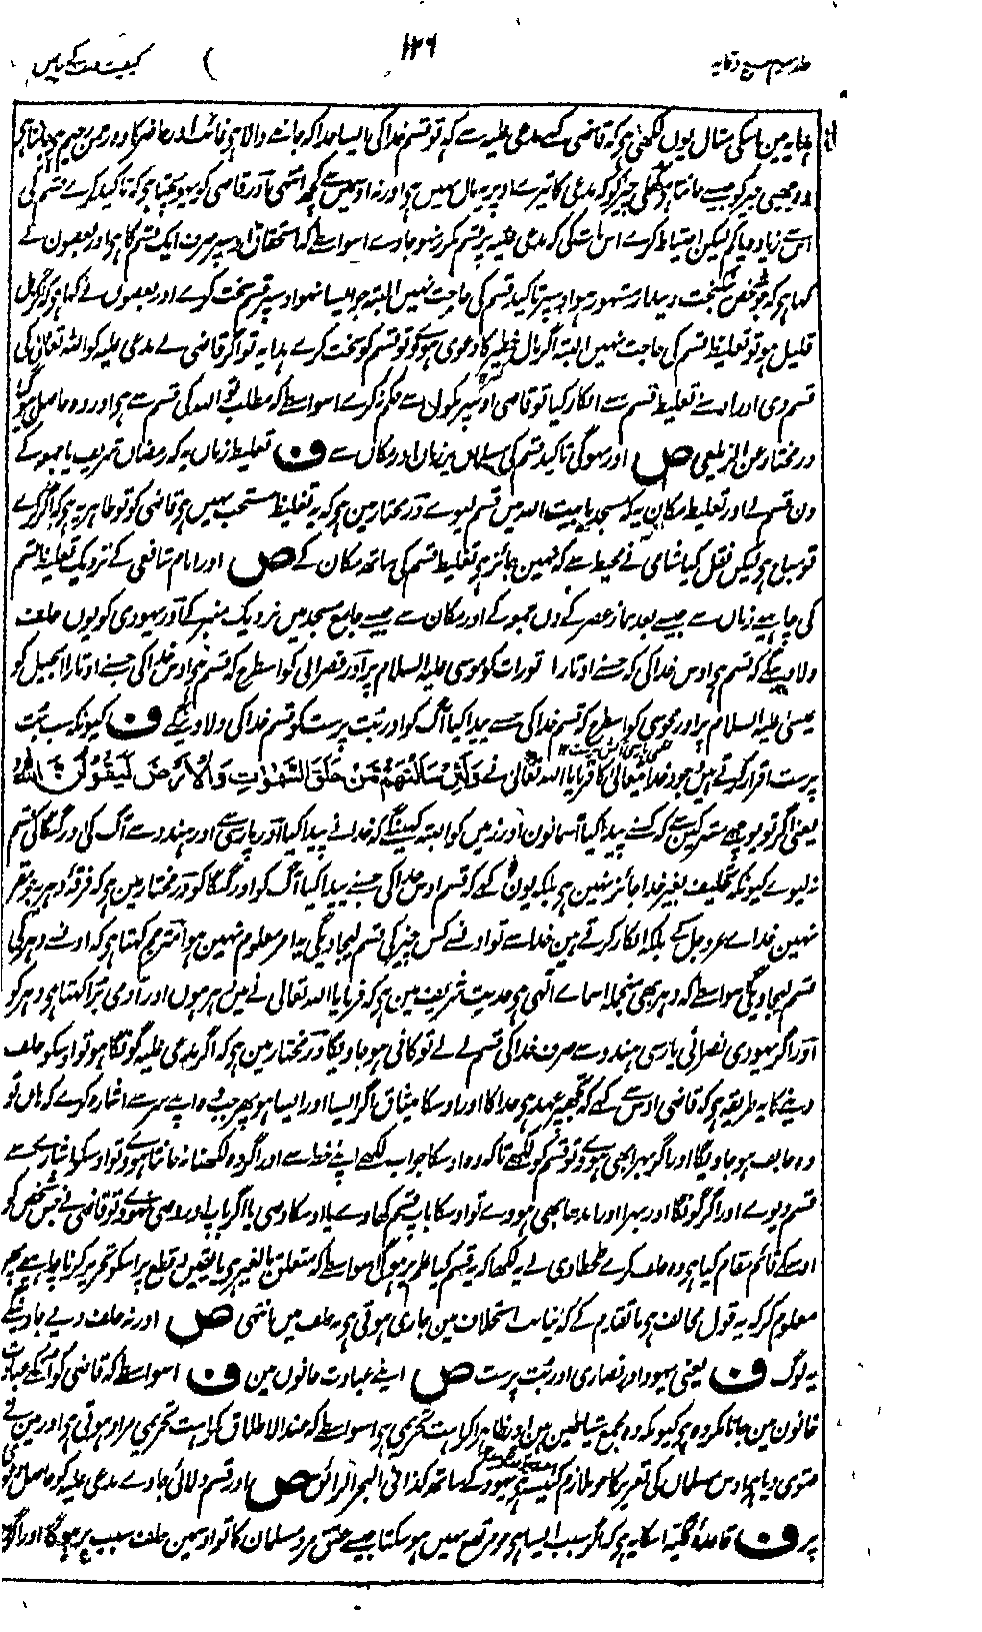 ۱۲۶
ہدایہ مین اسکی مثال یون لکھی ہی کہ قاضی کہے مدعی علیہ سے کہ تو قسم خدا کی ایسا خدا کہ جاننے والا ہی غائب اور حاضر کا وہ رحمن رحیم ہی جانتا ہی
چھپی چیز کو جیسے جانتا ہی کھلی چیز کو کہ مدعی کا تیرے اوپر یہ مال نہیں ہی اور نہ اوسمین سے کچھ انتہی اور قاضی کو پہونچتا ہی کہ تاکید کرے قسم کی
اس سے زیادہ یا کم لیکن احتیاط کرے اس بات کی کہ مدعی علیہ پر قسم مکرر نہو جاوے اسواسطے کہ استحقاق اوسپر صرف ایک قسم کا ہی اور بعضون نے
کہا ہی کہ جو شخص نیکبخت دیندار مشہور ہو اوسپر تاکید قسم کی حاجت نہیں البتہ جو ایسا نہو اوسپر قسم سخت کرے اور بعضون نے کہا ہی کہ اگر مال
قلیل ہو تو تغلیظ قسم کی حاجت نہیں البتہ اگر مال خطیر کا دعوی ہووے تو قسم کو سخت کرے ہدایہ تو اگر قاضی نے مدعی علیہ کو اللہ تعالی کی
قسم دی اور اوسنے تغلیظ قسم سے انکار کیا تو قاضی اوسپر نکول سے حکم نکرے اسواسطے کہ مطلب تو اللہ کی قسم سے ہی اور وہ حاصل ہو گیا
در مختار عن الزیلعی ص اور نہوگی تاکید قسم کی مسلمان پر زمان اور مکان سے ف تغلیظ زمان یہ کہ رمضان شریف یا جمعہ کے
دن قسم لے اور تغلیظ مکان یہ کہ مسجد یا بیت اللہ میں قسم لیوے در مختار مین ہی کہ یہ تغلیظ مستحب نہیں ہی قاضی کو تو ظاہر یہ ہی کہ اگر کرے
تو مباح ہی لیکن نقل کیا شامی نے محیط سے کہ نہین جائز ہی تغلیظ قسم کی ساتھ مکان کے ص اور امام شافعی کے نزدیک تغلیظ قسم
کی چاہیے زمان سے جیسے بعد نماز عصر کے دن جمعہ کے اور مکان سے جیسے جامع مسجد میں نزدیک منبر کے اور یہودی کو یوں حلف
دلاوینگے کہ قسم ہی اوس خدا کی کہ جسنے اوتارا تورات کو موسی علیہ السلام پر اور نصرانی کو اسطرح کہ قسم ہی اوس خدا کی جسنے اوتارا انجیل کو
عیسی علیہ السلام پر اور مجوسی کو اسطرح کہ قسم خدا کی جسنے پیدا کیا آگ کو اور بت پرست کو قسم خدا کی دلاوینگے ف کیونکہ سب بت
پرست اقرار کرتے ہین وجود خدا تعالی کا فرمایا اللہ تعالی نے وَلَئِنْ سَاَلْتَهُمْ مَنْ خَلَقَ السَّمٰوٰتِ وَالْاَرْضَ لَيَقُوْلُنَّ اللّٰهُ
یعنی اگر تو پوچھے مشرکین سے کہ کسنے پیدا کیا آسمانون اور زمین کو البتہ کہینگے کہ خدا نے پیدا کیا اور پارسی سے اور ہندو سے آگ کی اور گنگا کی قسم
نہ لیوے کیونکہ تحلیف بغیر خدا جائز نہین ہی بلکہ یون کہے کہ قسم اوس خدا کی جسنے پیدا کیا آگ کو اور گنگا کو در مختار مین ہی کہ فرقہ دہریہ مقر
نہین خداے عزوجل کے بلکہ انکار کرتے ہین خدا سے تو اونسے کس چیز کی قسم لیجاویگی یہ امر معلوم نہین ہوا مترجم کہتا ہی کہ اونسے دہر کی
قسم لیجاویگی اسواسطے کہ دہر بھی منجملہ اسماے الہی ہی حدیث شریف مین ہی کہ فرمایا اللہ تعالی نے مین دہر ہوں اور آدمی برا کہتا ہی دہر کو
اور اگر یہودی نصرانی پارسی ہندو سے صرف خدا کی قسم لے لے تو کافی ہو جاویگا در مختار مین ہی کہ اگر مدعی علیہ گونگا ہو تو اوسکو حلف
دینے کا یہ طریقہ ہی کہ قاضی اوس سے کہے کہ تجھپر عہد ہی خدا کا اور اوسکا میثاق اگر ایسا اور ایسا ہو پھر جب وہ اپنے سر سے اشارہ کرے کہ ہاں تو
وہ حالف ہو جاویگا اور اگر بہرا بھی ہووے تو قسم کو لکھے تاکہ وہ اوسکا جواب لکھے اپنے خط سے اور اگر وہ لکھنا نہ جانتا ہووے تو اوسکو اشارے سے
قسم دیوے اور اگر گونگا اور بہرا اور اندھا بھی ہووے تو اوسکا باپ قسم کھاوے یا اوسکا وصی یا اگر باپ اور وصی نہووے تو قاضی نے جس شخص کو
اوسکے قائم مقام کیا ہی وہ حلف کرے طحطاوی نے یہ لکھا کہ یہ قسم کیا علم پر ہوگی اسواسطے کہ متعلق بالغیر ہی یا یقین و قطع پر اسکو تحریر کرنا چاہیے پھر
معلوم کر کہ یہ قول مخالف ہی ما تقدم کے کہ نیابت استحلاف مین جاری ہوتی ہی نہ حلف مین انتہی ص اور نہ حلف دیے جاوینگے
یہ لوگ ف یعنی یہود اور نصاری اور بت پرست ص اپنے عبادت خانوں مین ف اسواسطے کہ قاضی کو اونکے عبادت
خانون مین جانا مکروہ ہی کیونکہ وہ مجمع شیاطین ہین اور ظاہرا کراہت تحریمی ہی اسواسطے کہ عند الاطلاق کراہت تحریمی مراد ہوتی ہی اور مین نے
فتوی دیا ہی اوس مسلمان کی تعزیر کا جو ملازم کنیسہ ہی یہود کے ساتھ کذا فی البحر الرائق ص اور قسم دلائی جاوے مدعی علیہ کو حاصل
پر ف قاعدہ کلیہ اسکا یہ ہی کہ اگر سبب ایسا ہی جو مرتفع نہیں ہو سکتا جیسے عتق مرد مسلمان کا تو اوسمین حلف سبب پر ہوگا اور اگر